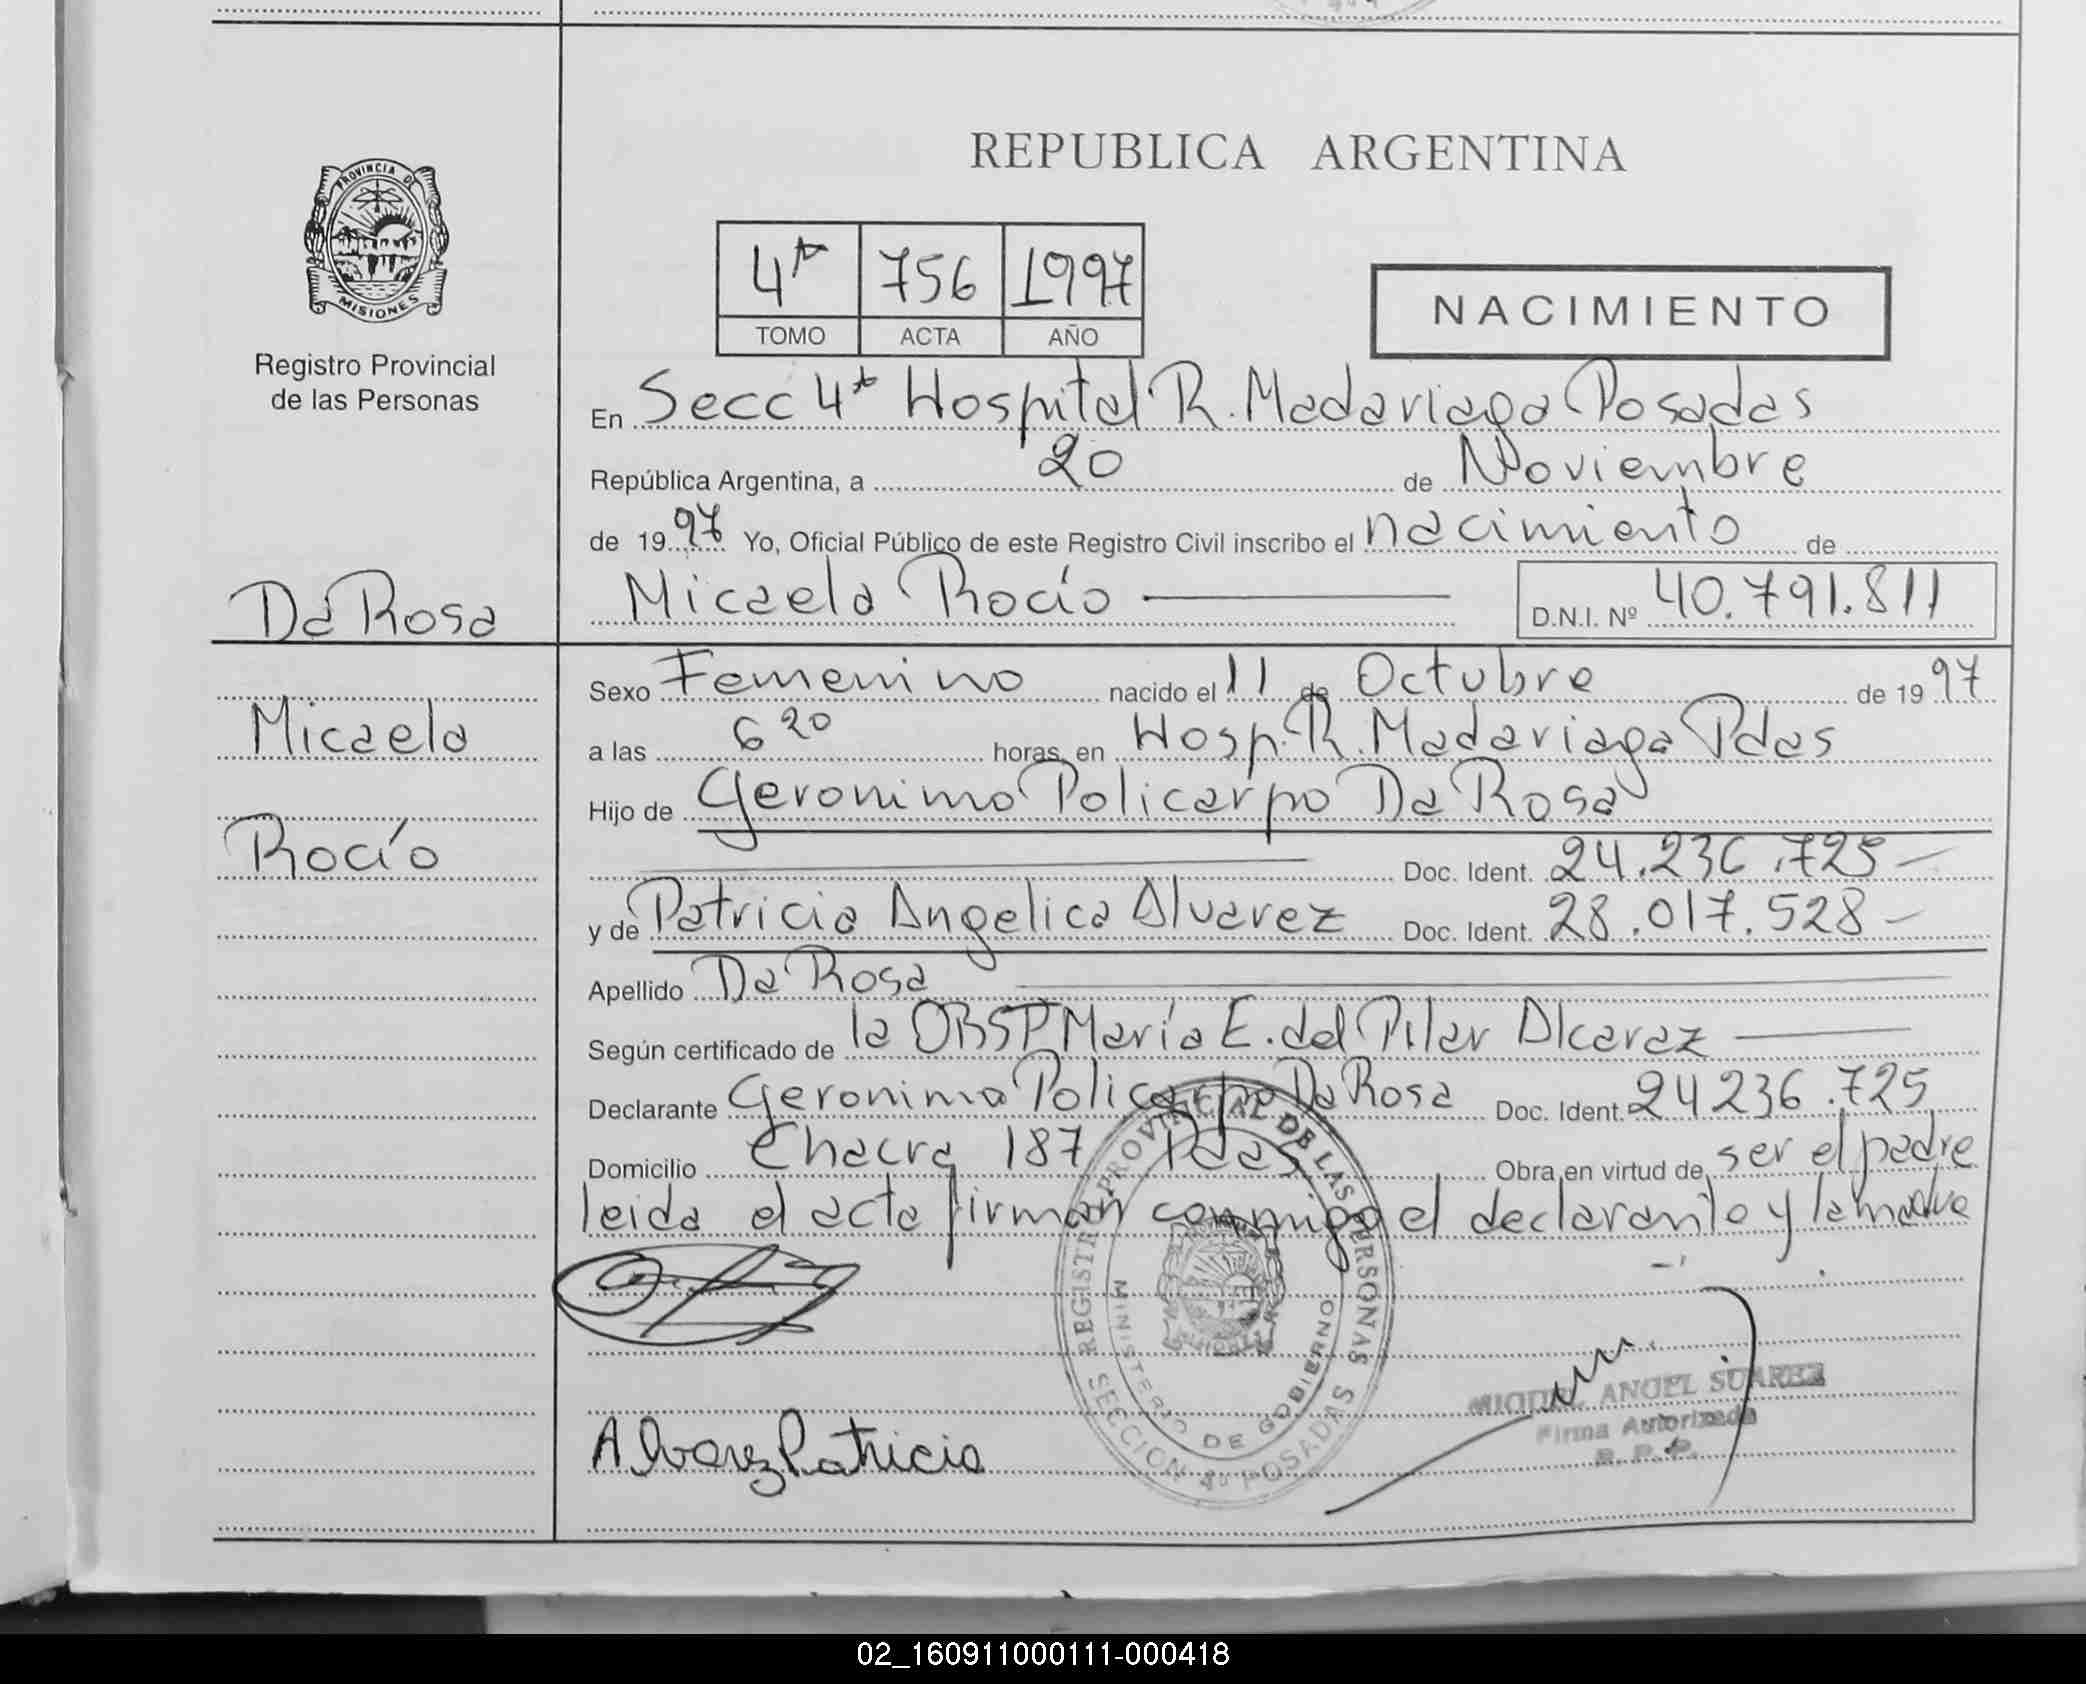 REPUBLICA ARGENTINA
PROVINCIA DE
MISIONES
Registro Provincial
de las Personas
4ta 756 1997
TOMO ACTA AÑO
NACIMIENTO
En Secc 4ta Hospital R. Madariaga Posadas
República Argentina, a 20 de Noviembre
de 1997 Yo, Oficial Público de este Registro Civil inscribo el nacimiento de
Micaela Rocío D.N.I. Nº 40.791.811
Da Rosa
Micaela
Rocío
Sexo Femenino nacido el 11 de Octubre de 1997
a las 6 20 horas, en Hosp. R. Madariaga Pdas
Hijo de Geronimo Policarpo Da Rosa
Doc. Ident. 24.236.725-
y de Patricia Angelica Alvarez Doc. Ident. 28.017.528-
Apellido Da Rosa
Según certificado de la OBST María E. del Pilar Alcaraz
Declarante Geronimo Policarpo Da Rosa Doc. Ident. 24 236.725
Domicilio Chacra 187 Pdas Obra en virtud de ser el padre
leida el acta firman conmigo el declarante y la madre
REGISTRO PROVINCIAL DE LAS PERSONAS
MINISTERIO DE GOBIERNO
SECCION 4a POSADAS
MIGUEL ANGEL SUAREZ
Firma Autorizada
R. P. P.
Alvarez Patricia
02_160911000111-000418